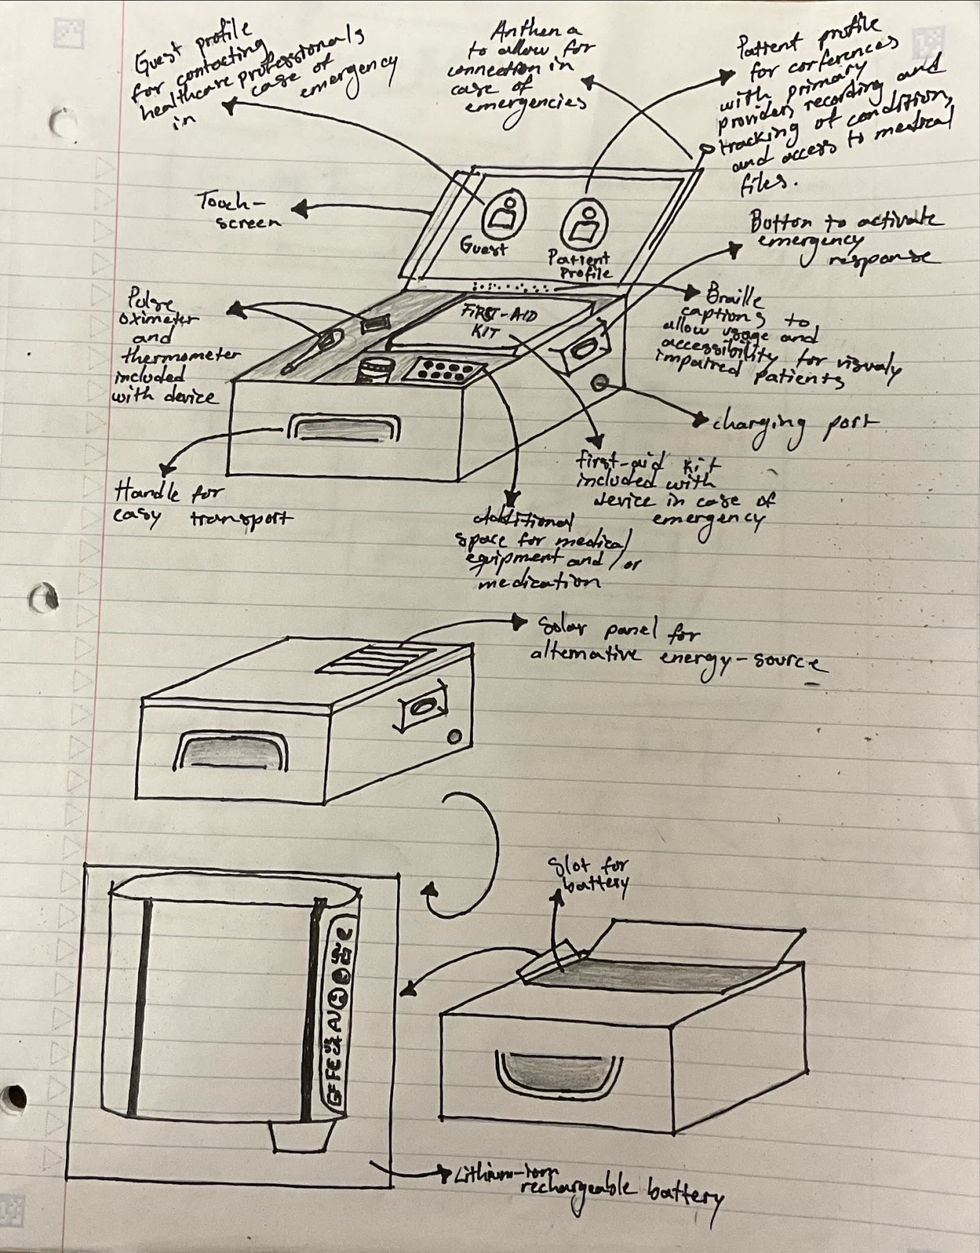 Guest profile
for contacting
healthcare professionals
in case of
emergency
Anthena
to allow for
connection in
case of
emergencies
Patient profile
for corferences
with primary
providers, recording and
tracking of condition,
and access to medical
files.
Touch-
screen
Guest
Patient
Profile
Button to activate
emergency
response
Pulse
oximeter
and
thermometer
included
with device
FIRST-AID
KIT
Braille
captions to
allow usage and
accessibility for visualy
impaired patients
charging port
Handle for
easy transport
first-aid kit
included with
device in case of
emergency
additional
space for medical
equipment and/or
medication
Solar panel for
alternative energy-source
Slot for
battery
Lithium-ion
rechargeable battery